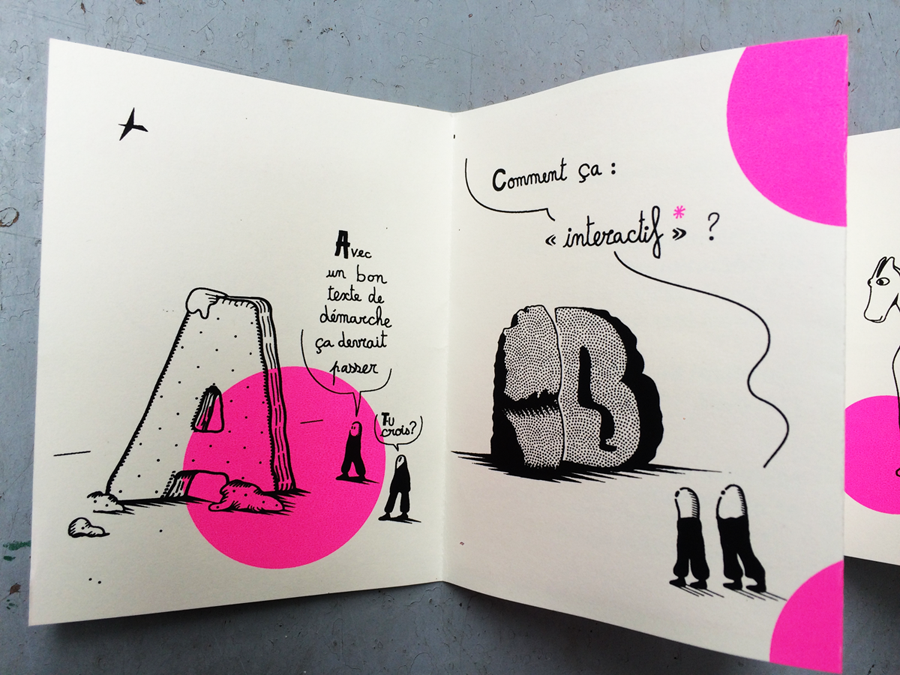 Avec
un bon
texte de
démarche
ça devrait
passer
Tu
crois?
Comment ça :
« interactif* » ?